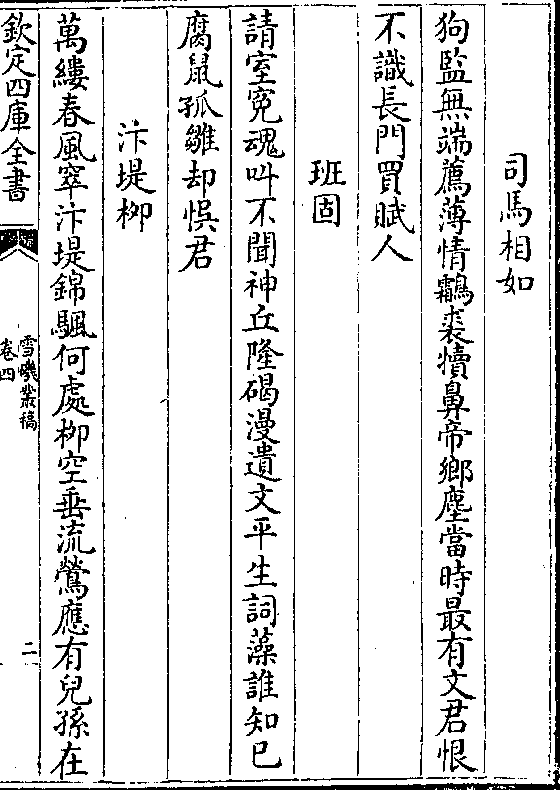 司馬相如
狗監無端薦薄情鷫裘犢鼻帝鄉塵當時最有文君恨
不識長門買賦人
班固
請室寃魂叫不聞神丘隆碣漫遺文平生詞藻誰知已
腐鼠孤雛却悞君
汴堤柳
萬縷春風窣汴堤錦颿何處柳空垂流鶯應有兒孫在
欽定四庫全書
雪磯叢稿
卷四
二